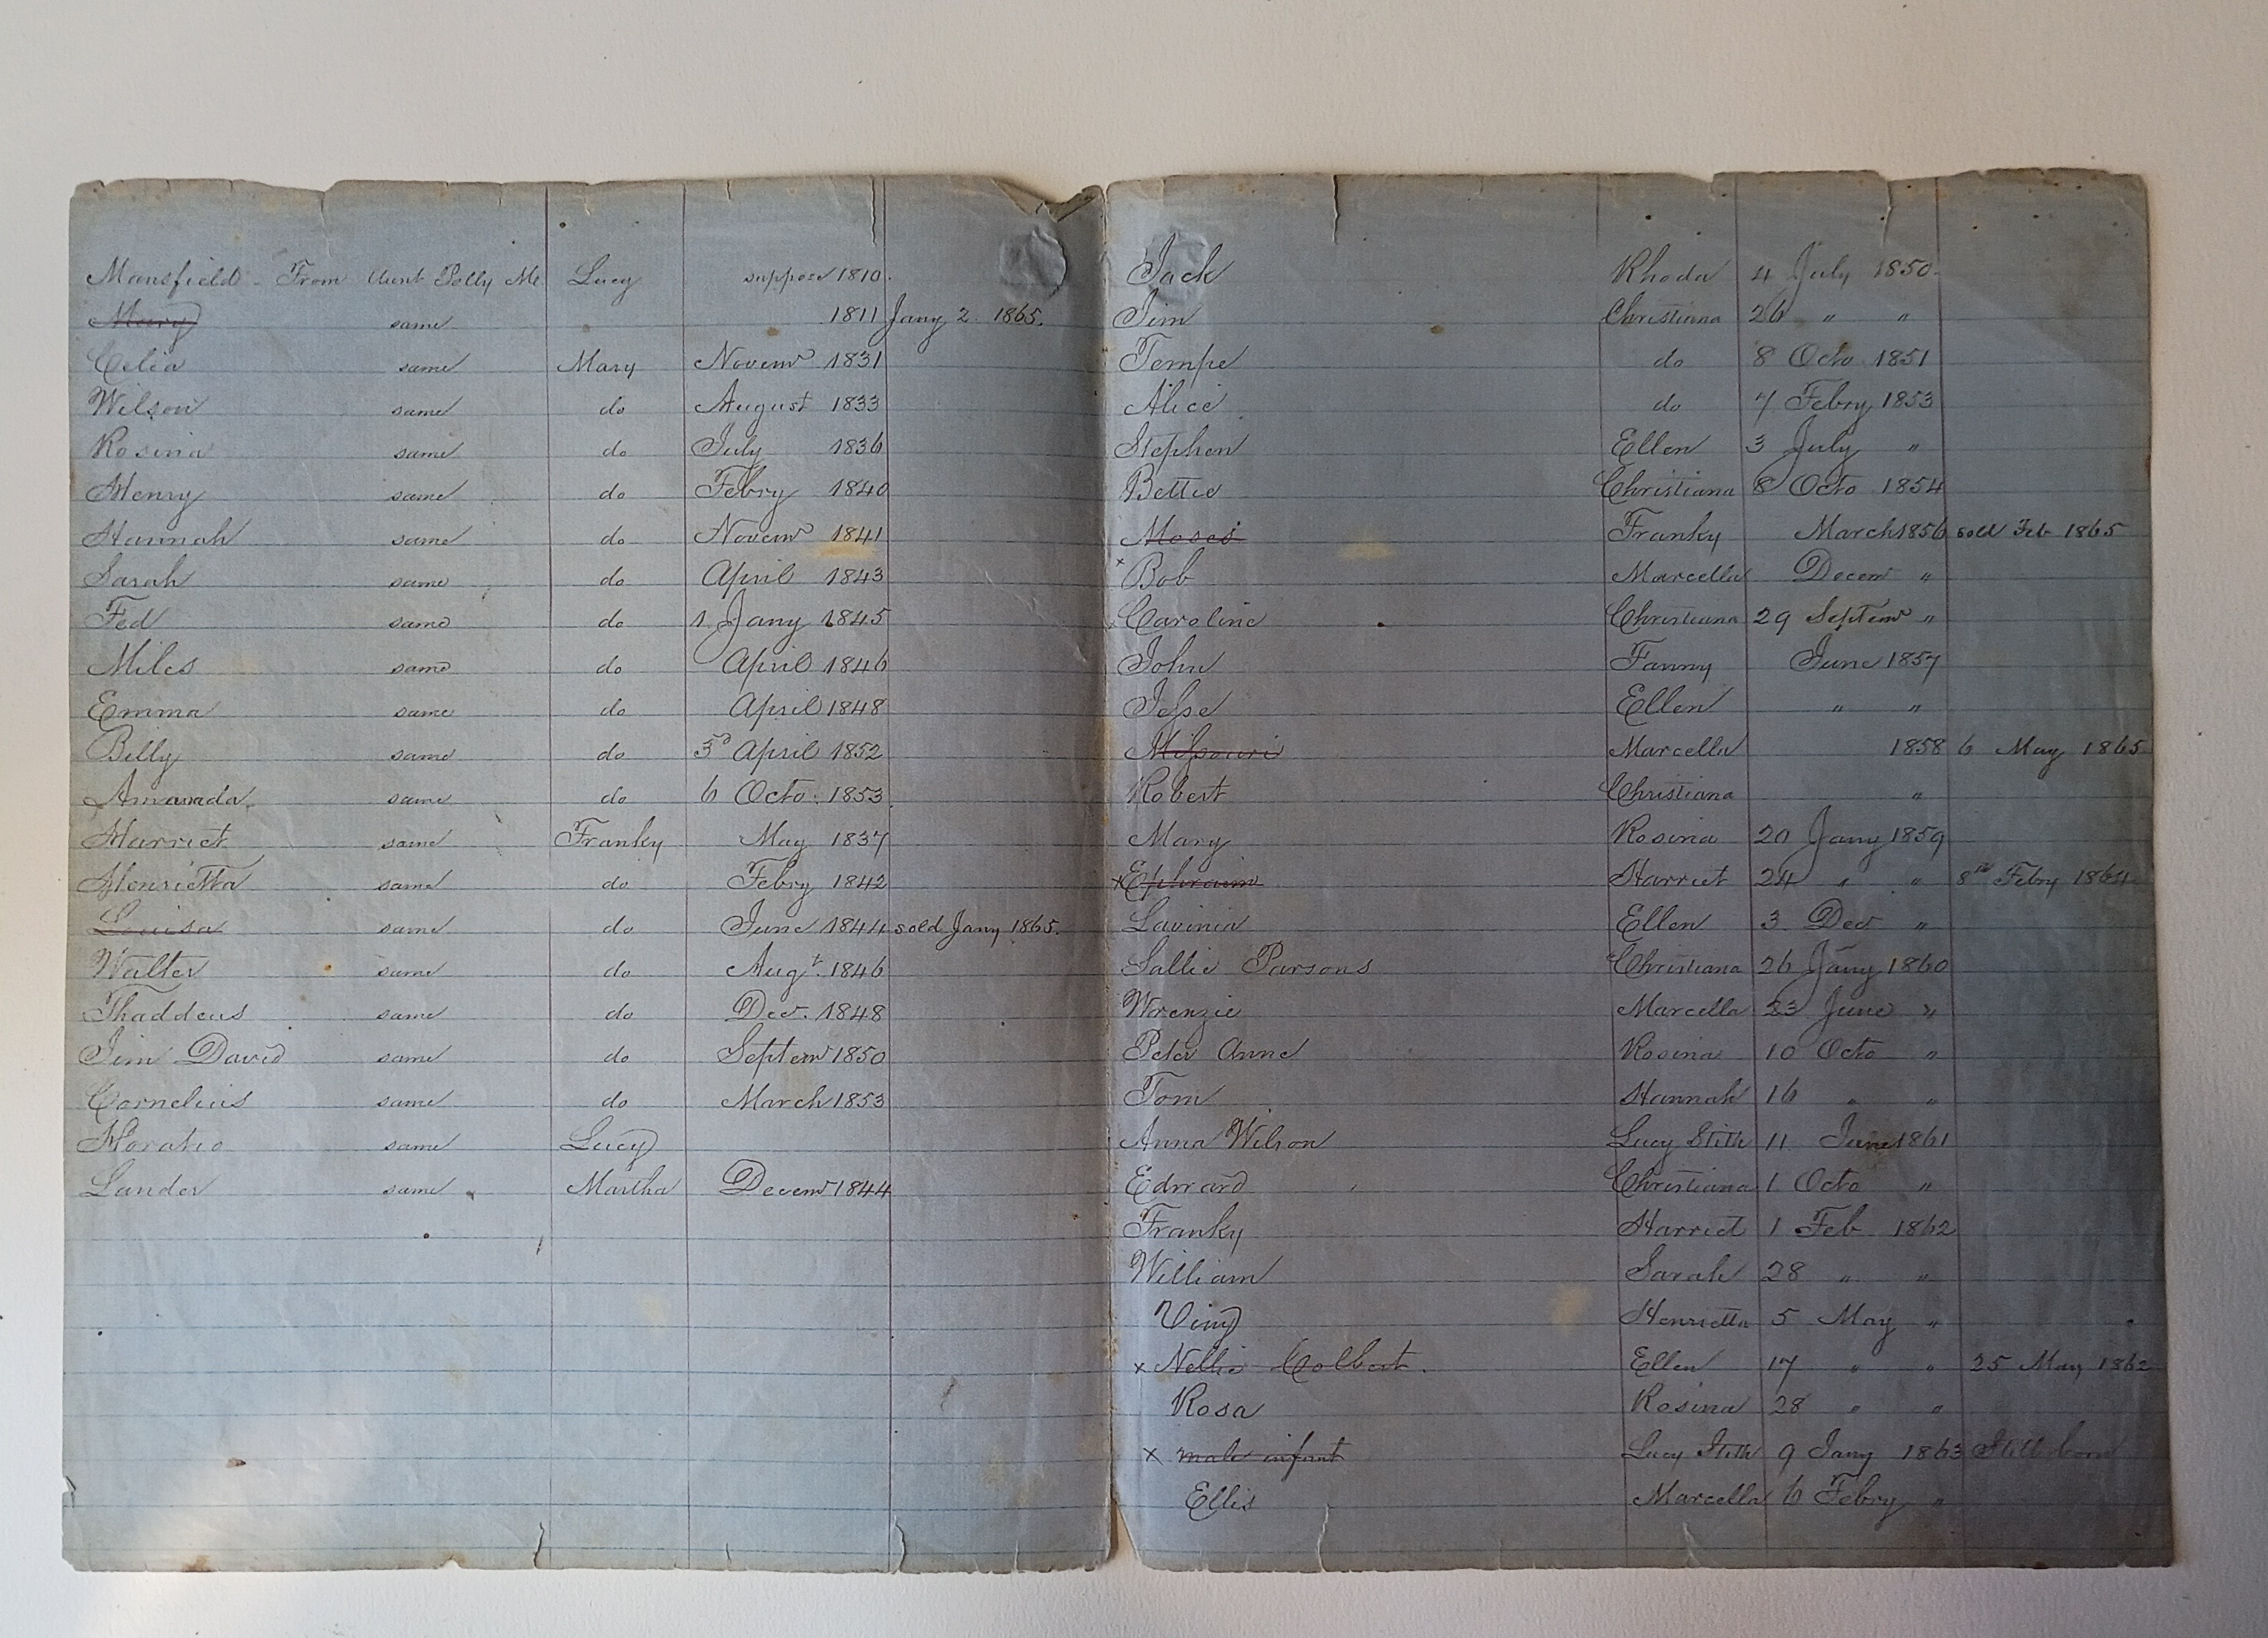 Mansfield - From Aunt Polly Mc Lucy suppose 1810.
Mary same 1811 Jany 2 1865.
Celia same Mary Novemr 1831
Wilson same do August 1833
Rosina same do July 1836
Henry same do Febry 1840
Hannah same do Novemr 1841
Sarah same do April 1843
Fed same do 1 Jany 1845
Miles same do April 1846
Emma same do April 1848
Billy same do 3d April 1852
Amanda. same do 6 Octo. 1853
Harriet same Franky May 1837
Henrietta same do Febry 1842
Louisa same do June 1844 sold Jany 1865.
Walter same do Augt. 1846
Thaddeus same do Dec. 1848
Jim David same do Septemr 1850
Cornelius same do March 1853
Horatio same Lucy
Lander same Martha Decemr 1844
Jack Rhoda 4 July 1850.
Jim Christiana 26 " "
Tempe do 8 Octo 1851
Alice do 7 Febry 1853
Stephen Ellen 3 July "
Bettie Christiana 8 Octo 1854
Moses Franky March 1856 sold Feb 1865
x Bob Marcella Decemr "
Caroline Christiana 29 Septemr "
John Fanny June 1857
Jesse Ellen " "
Missouri Marcella 1858 6 May 1865
Robert Christiana "
Mary Rosina 20 Jany 1859
x Ephraim Harriet 24 " " 8th Febry 1864
Lavinia Ellen 3 Dec "
Sallie Parsons Christiana 26 Jany 1860
Wrenzie Marcella 23 June "
Peter Anne Rosina 10 Octo "
Tom Hannah 16 " "
Anna Wilson Lucy Stith 11 June 1861
Edward Christiana 1 Octo "
Franky Harriet 1 Feb 1862
William Sarah 28 " "
Viny Henrietta 5 May "
x Nellie Colbert. Ellen 17 " " 25 May 1862
Rosa Rosina 28 " "
x male infant Lucy Stith 9 Jany 1863 Still born
Ellis Marcella 6 Febry "